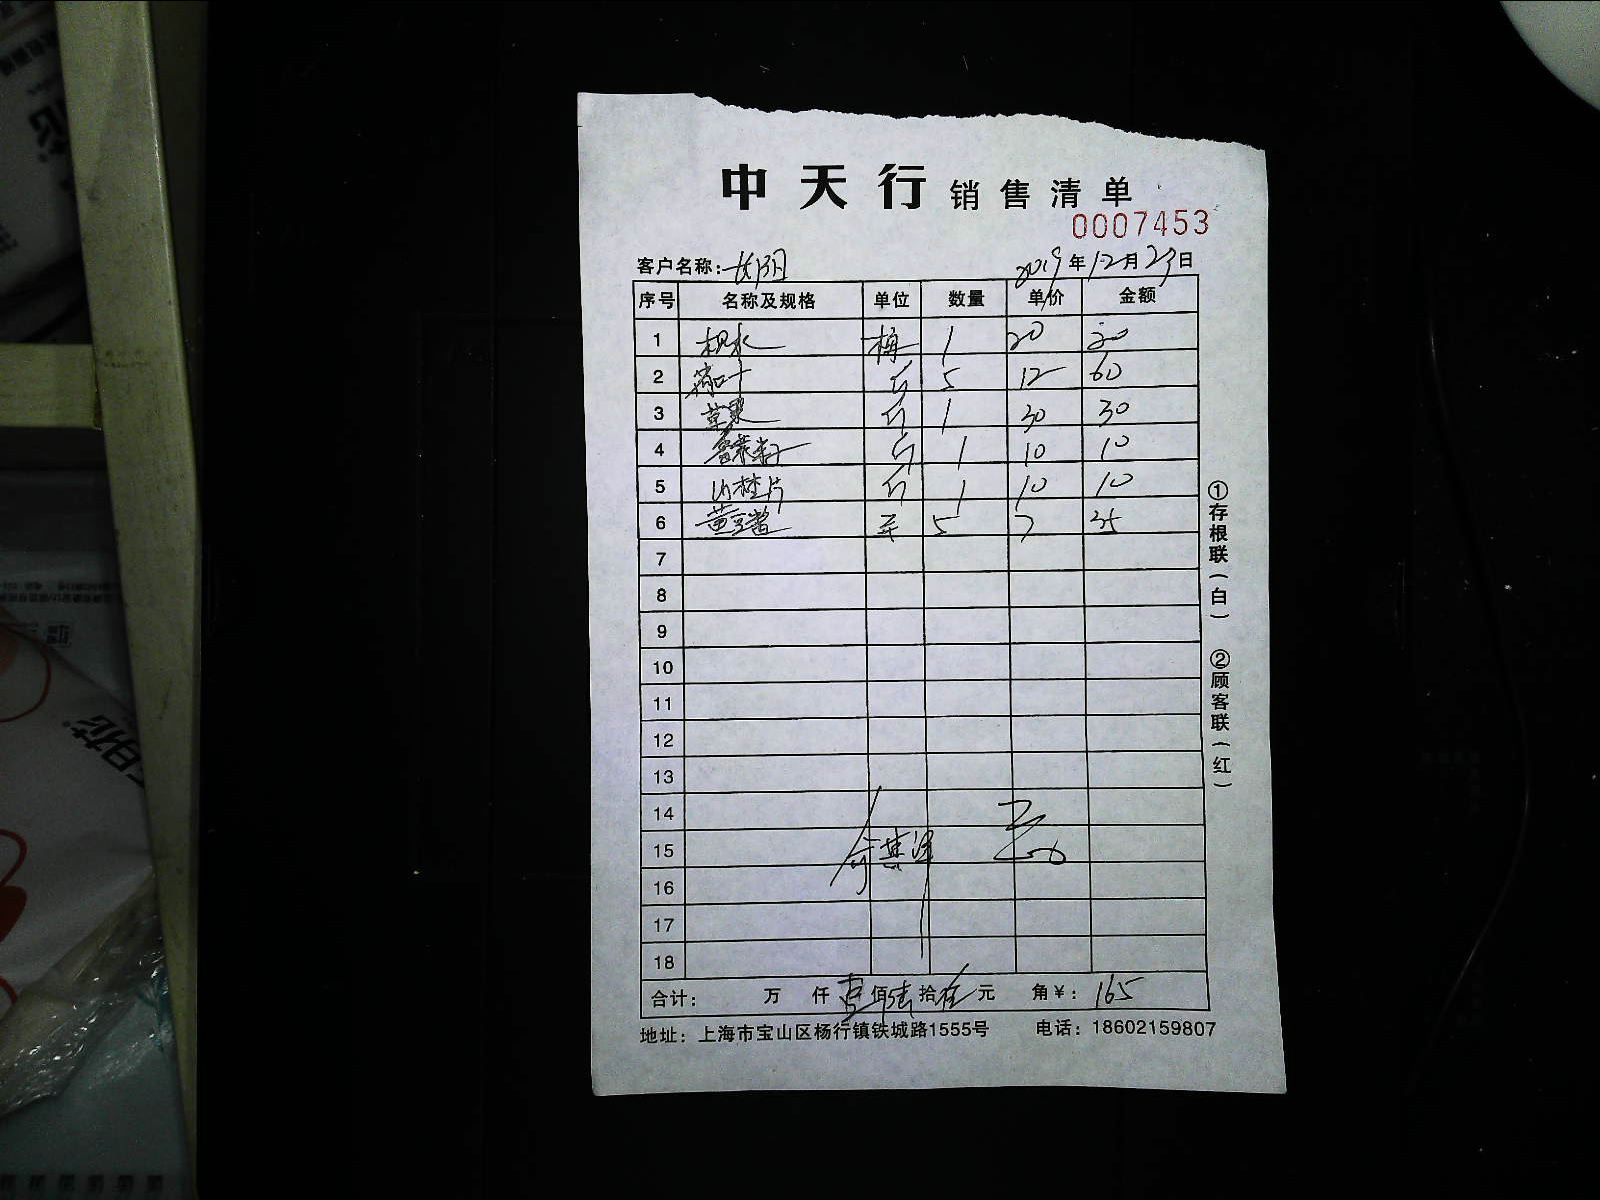 中天行 销售清单
0007453
客户名称: 长阳 2019年12月23日
序号 名称及规格 单位 数量 单价 金额
1 枧水 1 20 20
2 斤 5 12 60
3 草果 斤 1 30 30
4 斤 1 10 10
5 山楂片 斤 1 10 10
6 黄豆酱 5 7 35
7
8
9
10
11
12
13
14
15
16
17
18
合计: 万 仟 壹 佰 陆 拾 伍 元 角 ¥: 165
地址: 上海市宝山区杨行镇铁城路1555号 电话: 18602159807
①存根联(白)
②顾客联(红)